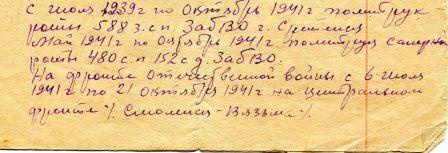 с июля 1939г по октябрь 1941г политрук
роты 588 з.сп. ЗабВО г. Сретенск
Май 1941г по Октябрь 1941г политрук саперн
роты 480 с.п 152 с д. ЗабВО.
На фронте отечественной войны с 6 июля
1941г по 21 октября 1941г на центральном
фронте /. Смоленск - Вязьма /.